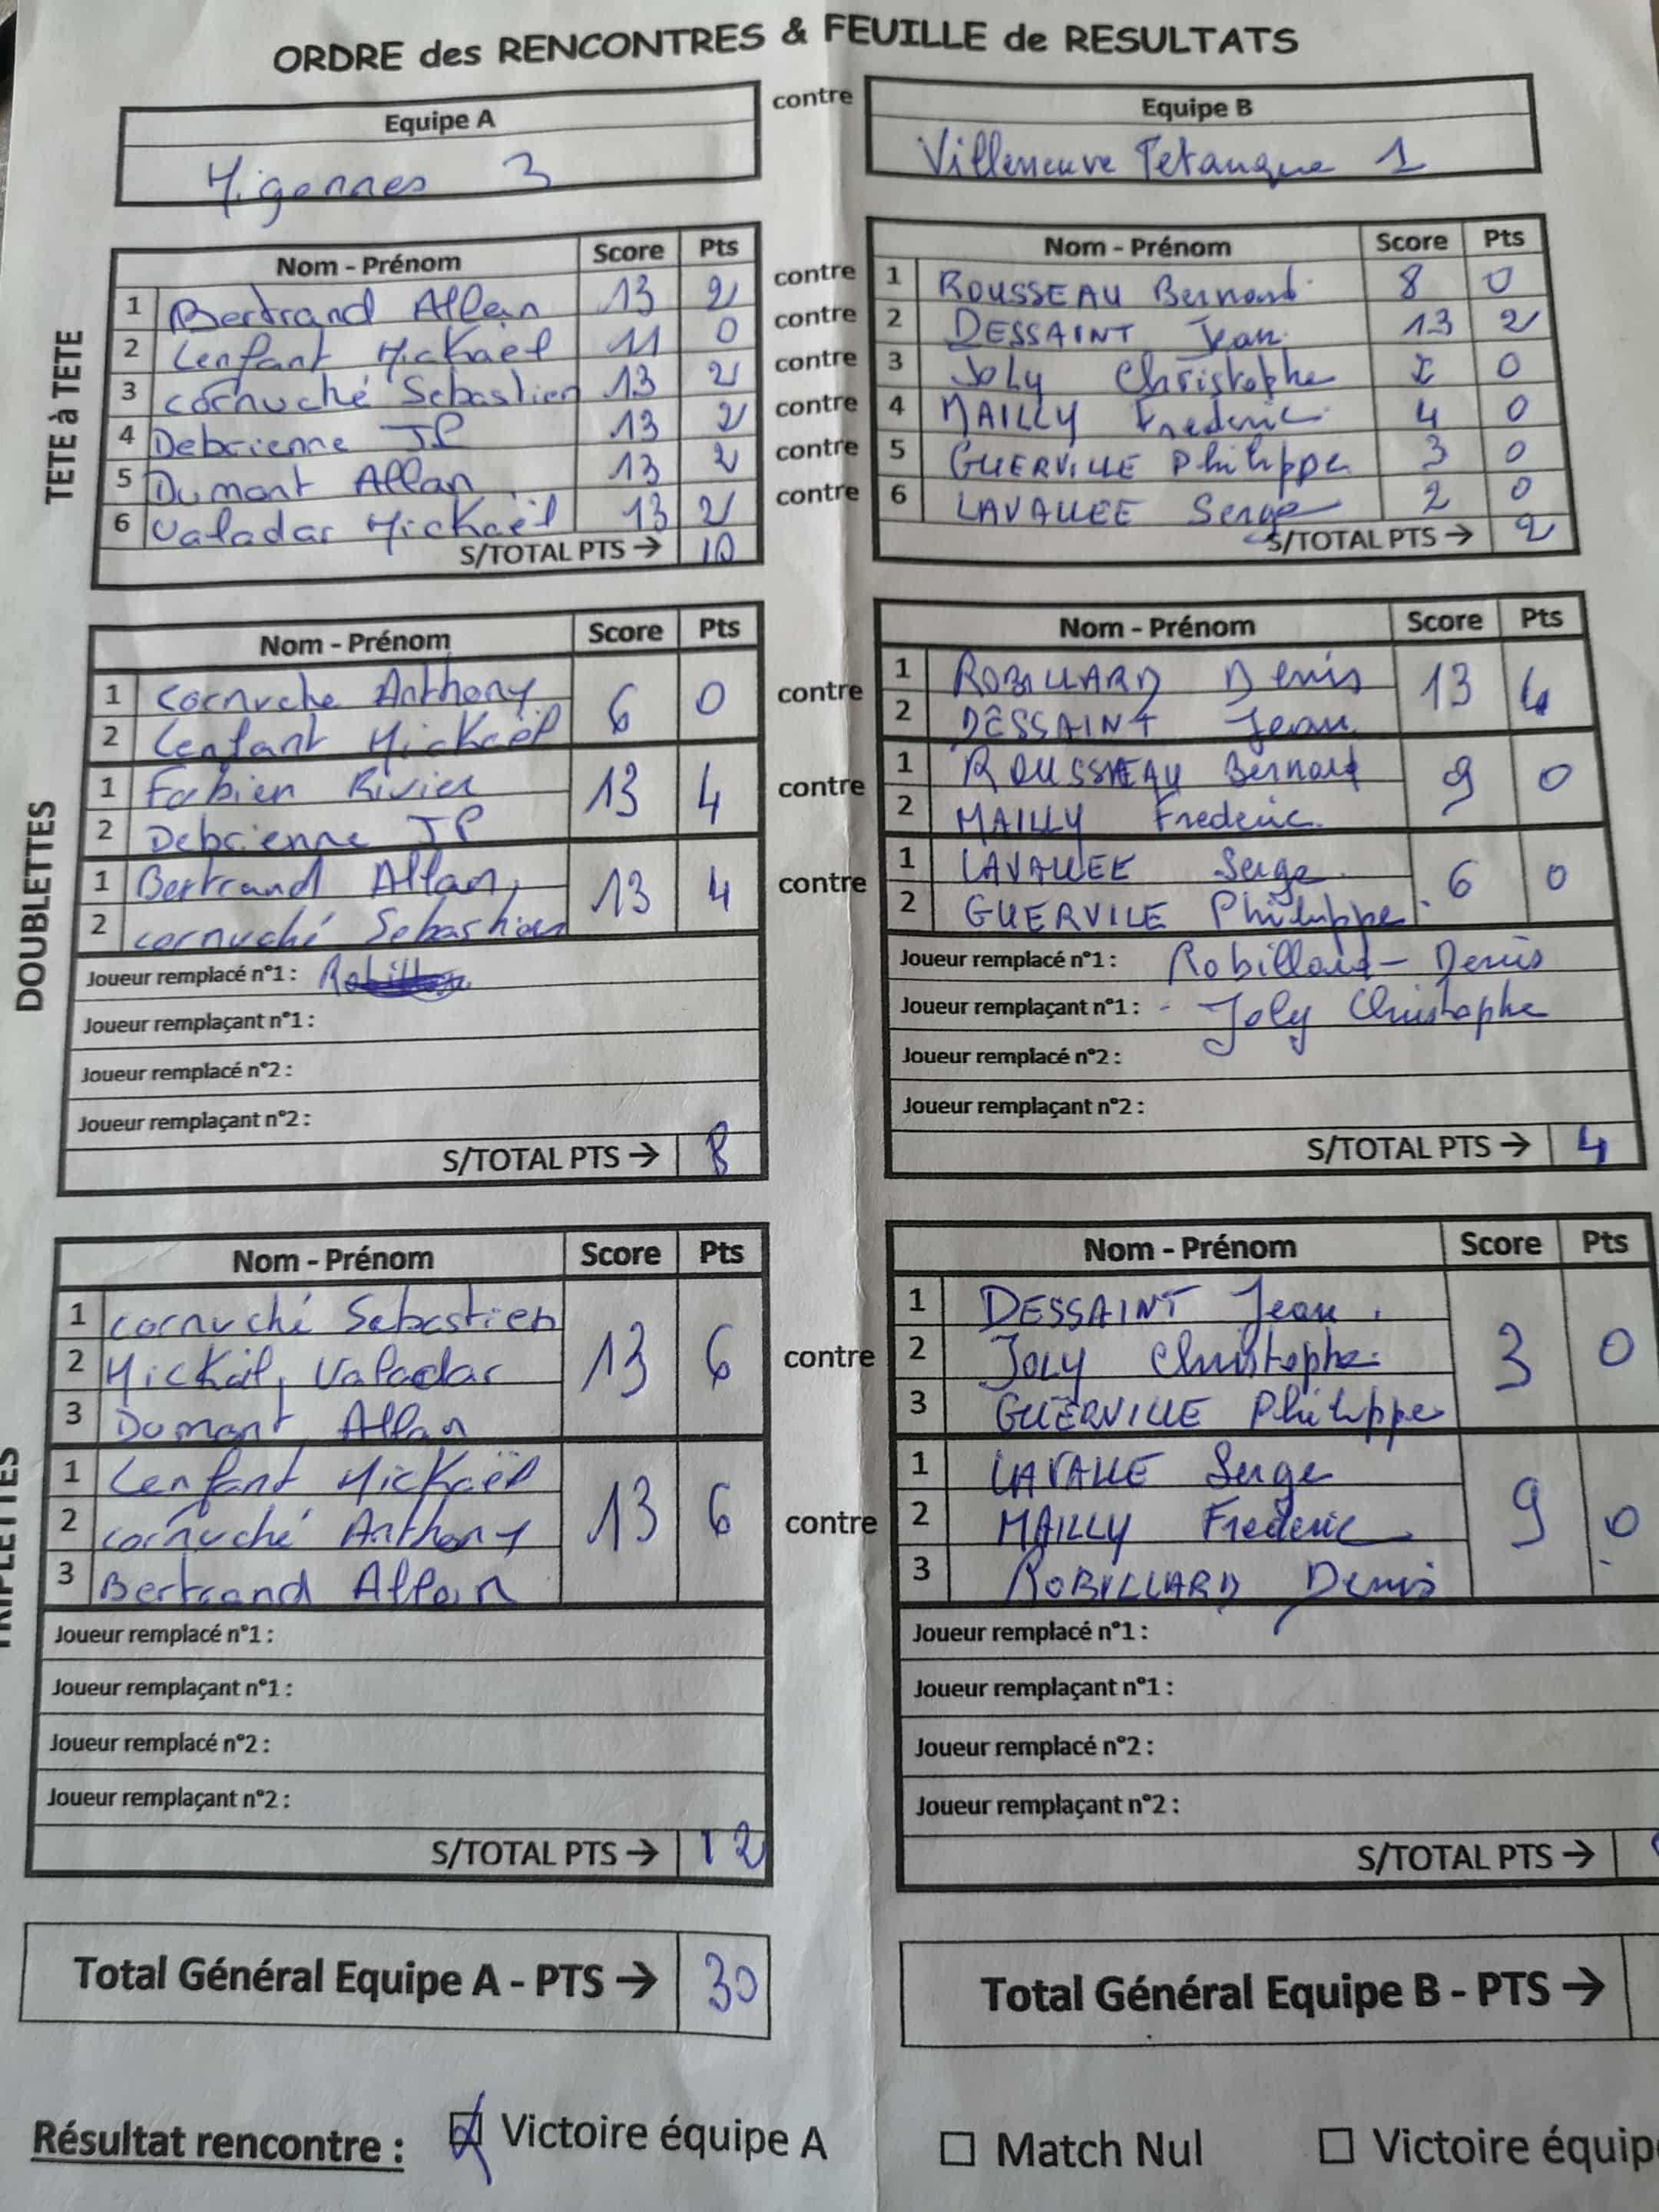 ORDRE des RENCONTRES & FEUILLE de RESULTATS
Equipe A contre Equipe B
Migennes 3 Villeneuve Petanque 1
TETE à TETE
Nom - Prénom Score Pts Nom - Prénom Score Pts
1 Bertrand Allan 13 2 contre 1 ROUSSEAU Bernard 8 0
2 Lenfant Mickaël 11 0 contre 2 DESSAINT Jean 13 2
3 cornuché Sebastien 13 2 contre 3 Joly Christophe 0
4 Debrienne JP 13 2 contre 4 MAILLY Frederic 4 0
5 Dumont Allan 13 2 contre 5 GUERVILLE Philippe 3 0
6 Valadar Mickaël 13 2 contre 6 LAVALLEE Serge 2 0
S/TOTAL PTS → 10 S/TOTAL PTS → 2
DOUBLETTES
Nom - Prénom Score Pts Nom - Prénom Score Pts
1 Cornuche Anthony 6 0 contre 1 ROBILLARD Denis 13 4
2 Lenfant Mickaël 2 DESSAINT Jean
1 Fabien Rivier 13 4 contre 1 ROUSSEAU Bernard 9 0
2 Debrienne JP 2 MAILLY Frederic
1 Bertrand Allan 13 4 contre 1 LAVALLEE Serge 6 0
2 cornuché Sebastien 2 GUERVILE Philippe
Joueur remplacé n°1 : Joueur remplacé n°1 : Robillard - Denis
Joueur remplaçant n°1 : Joueur remplaçant n°1 : - Joly Christophe
Joueur remplacé n°2 : Joueur remplacé n°2 :
Joueur remplaçant n°2 : Joueur remplaçant n°2 :
S/TOTAL PTS → 8 S/TOTAL PTS → 4
TRIPLETTES
Nom - Prénom Score Pts Nom - Prénom Score Pts
1 cornuché Sebastien 13 6 contre 1 DESSAINT Jean 3 0
2 Mickaël Valadar 2 JOLY Christophe
3 Dumont Allan 3 GUERVILLE Philippe
1 Lenfant Mickaël 13 6 contre 1 LAVALLE Serge 9 0
2 cornuché Anthony 2 MAILLY Frederic
3 Bertrand Allan 3 ROBILLARD Denis
Joueur remplacé n°1 : Joueur remplacé n°1 :
Joueur remplaçant n°1 : Joueur remplaçant n°1 :
Joueur remplacé n°2 : Joueur remplacé n°2 :
Joueur remplaçant n°2 : Joueur remplaçant n°2 :
S/TOTAL PTS → 12 S/TOTAL PTS →
Total Général Equipe A - PTS → 30 Total Général Equipe B - PTS →
Résultat rencontre : Victoire équipe A Match Nul Victoire équip